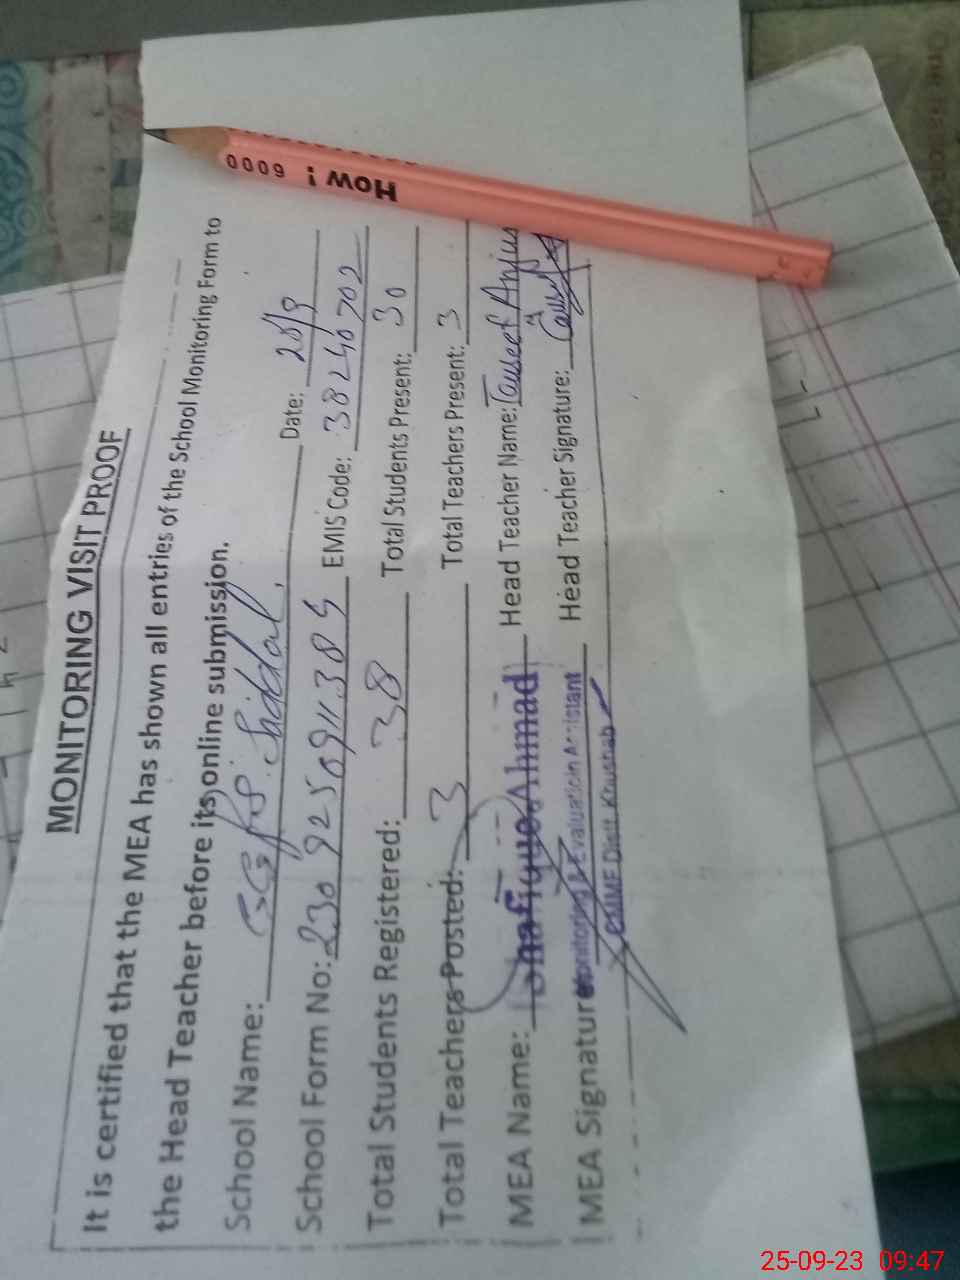 MONITORING VISIT PROOF
It is certified that the MEA has shown all entries of the School Monitoring Form to
the Head Teacher before its online submission.
School Name: Date:
School Form No: EMIS Code: 38240702
Total Students Registered: 38 Total Students Present: 30
Total Teachers Posted: 3 Total Teachers Present: 3
MEA Name: Shafique Ahmad Head Teacher Name: Tauseef Anjus
MEA Signature Monitoring & Evaluation Assistant Head Teacher Signature:
CMMF Distt. Khushab
How! 6000
25-09-23 09:47